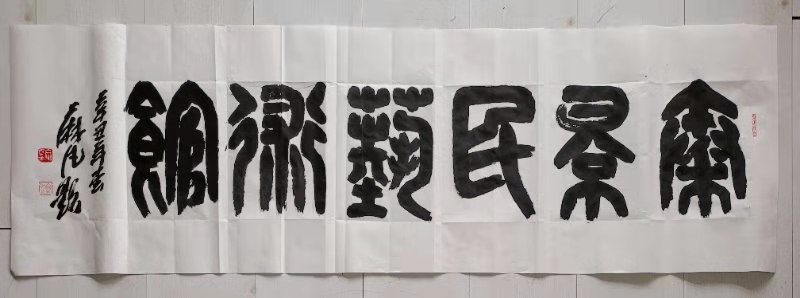 秦景民藝術館
辛丑年
題